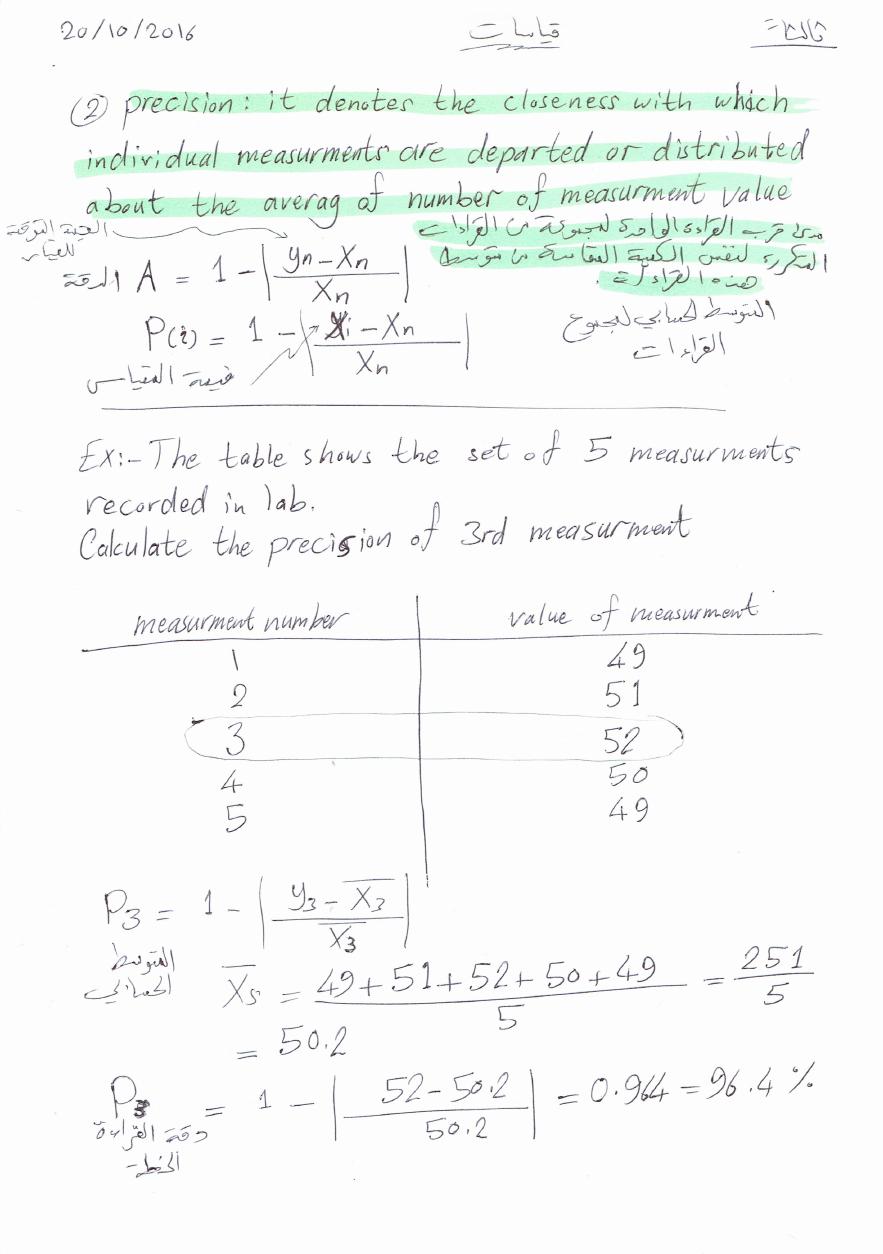 20/10/2016 قياسات ثالثة
② precision: it denotes the closeness with which
individual measurments are departed or distributed
about the averag of number of measurment value
القيمة المتوقعة
للعيار
مدى قرب القراءة الواحدة لمجموعة من القراءات
المتكررة لنفس الكمية المقاسة من متوسط
هذه القراءات.
الدقة A = 1 - | yn - Xn / Xn |
P(i) = 1 - | Xi - Xn / Xn |
قيمة المقياس
المتوسط الحسابي لمجموع
القراءات
Ex:- The table shows the set of 5 measurments
recorded in lab.
Calculate the precision of 3rd measurment
measurment number value of measurment
1 49
2 51
3 52
4 50
5 49
P3 = 1 - | y3 - X̅3 / X̅3 |
المتوسط
الحسابي
X̅5 = 49+51+52+50+49 / 5 = 251 / 5
= 50.2
P3 = 1 - | 52-50.2 / 50.2 | = 0.964 = 96.4 %
دقة القراءة